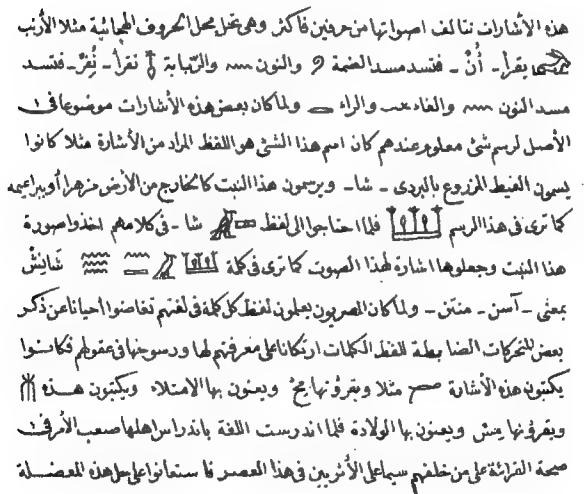 هذه الأشارات تتالف اصواتها من حرفين فاكثر وهى تحل محل الحروف الهجائية مثلا الأرنب
يقرأ - أُنْ - فتسد مسد الضمة والنون والرّبابة تقرأ - نُفِرْ - فتسد
مسد النون والفاء والراء ولما كان بعض هذه الأشارات موضوعا فى
الأصل لرسم شئ معلوم عندهم كان اسم هذا الشئ هو اللفظ المراد من الأشارة مثلا كانوا
يسمون الغيط المزروع بالبردى - شا - ويرسمون هذا النبت كالخارج من الأرض مزهرا أو ببراعيمه
كما ترى فى هذا الرسم فلما احتاجوا الى لفظ شا - فى كلامهم اخذوا صورة
هذا النبت وجعلوها اشارة لهذا الصوت كما ترى فى كلمة شَانِشْ
بمعنى - آسن - منتن - ولما كان المصريون يعلمون لفظ كل كلمة فى لغتهم تغاضوا احيانا عن ذكر
بعض المتحركات الضابطة للفظ الكلمات ارتكانا على معرفتهم لها ورسوخها فى عقولهم فكانوا
يكتبون هذه الأشارة مثلا ويقرؤنها مِحْ ويعنون بها الامتلاء ويكتبون هذه
ويقرؤنها مِسْ ويعنون بها الولادة فلما اندرست اللغة باندراس اهلها صعب الأمر فى
صحة القرائة على من خلفهم سيما على الأثريين فى هذا العصر فاستعانوا على حل هذه المعضلة